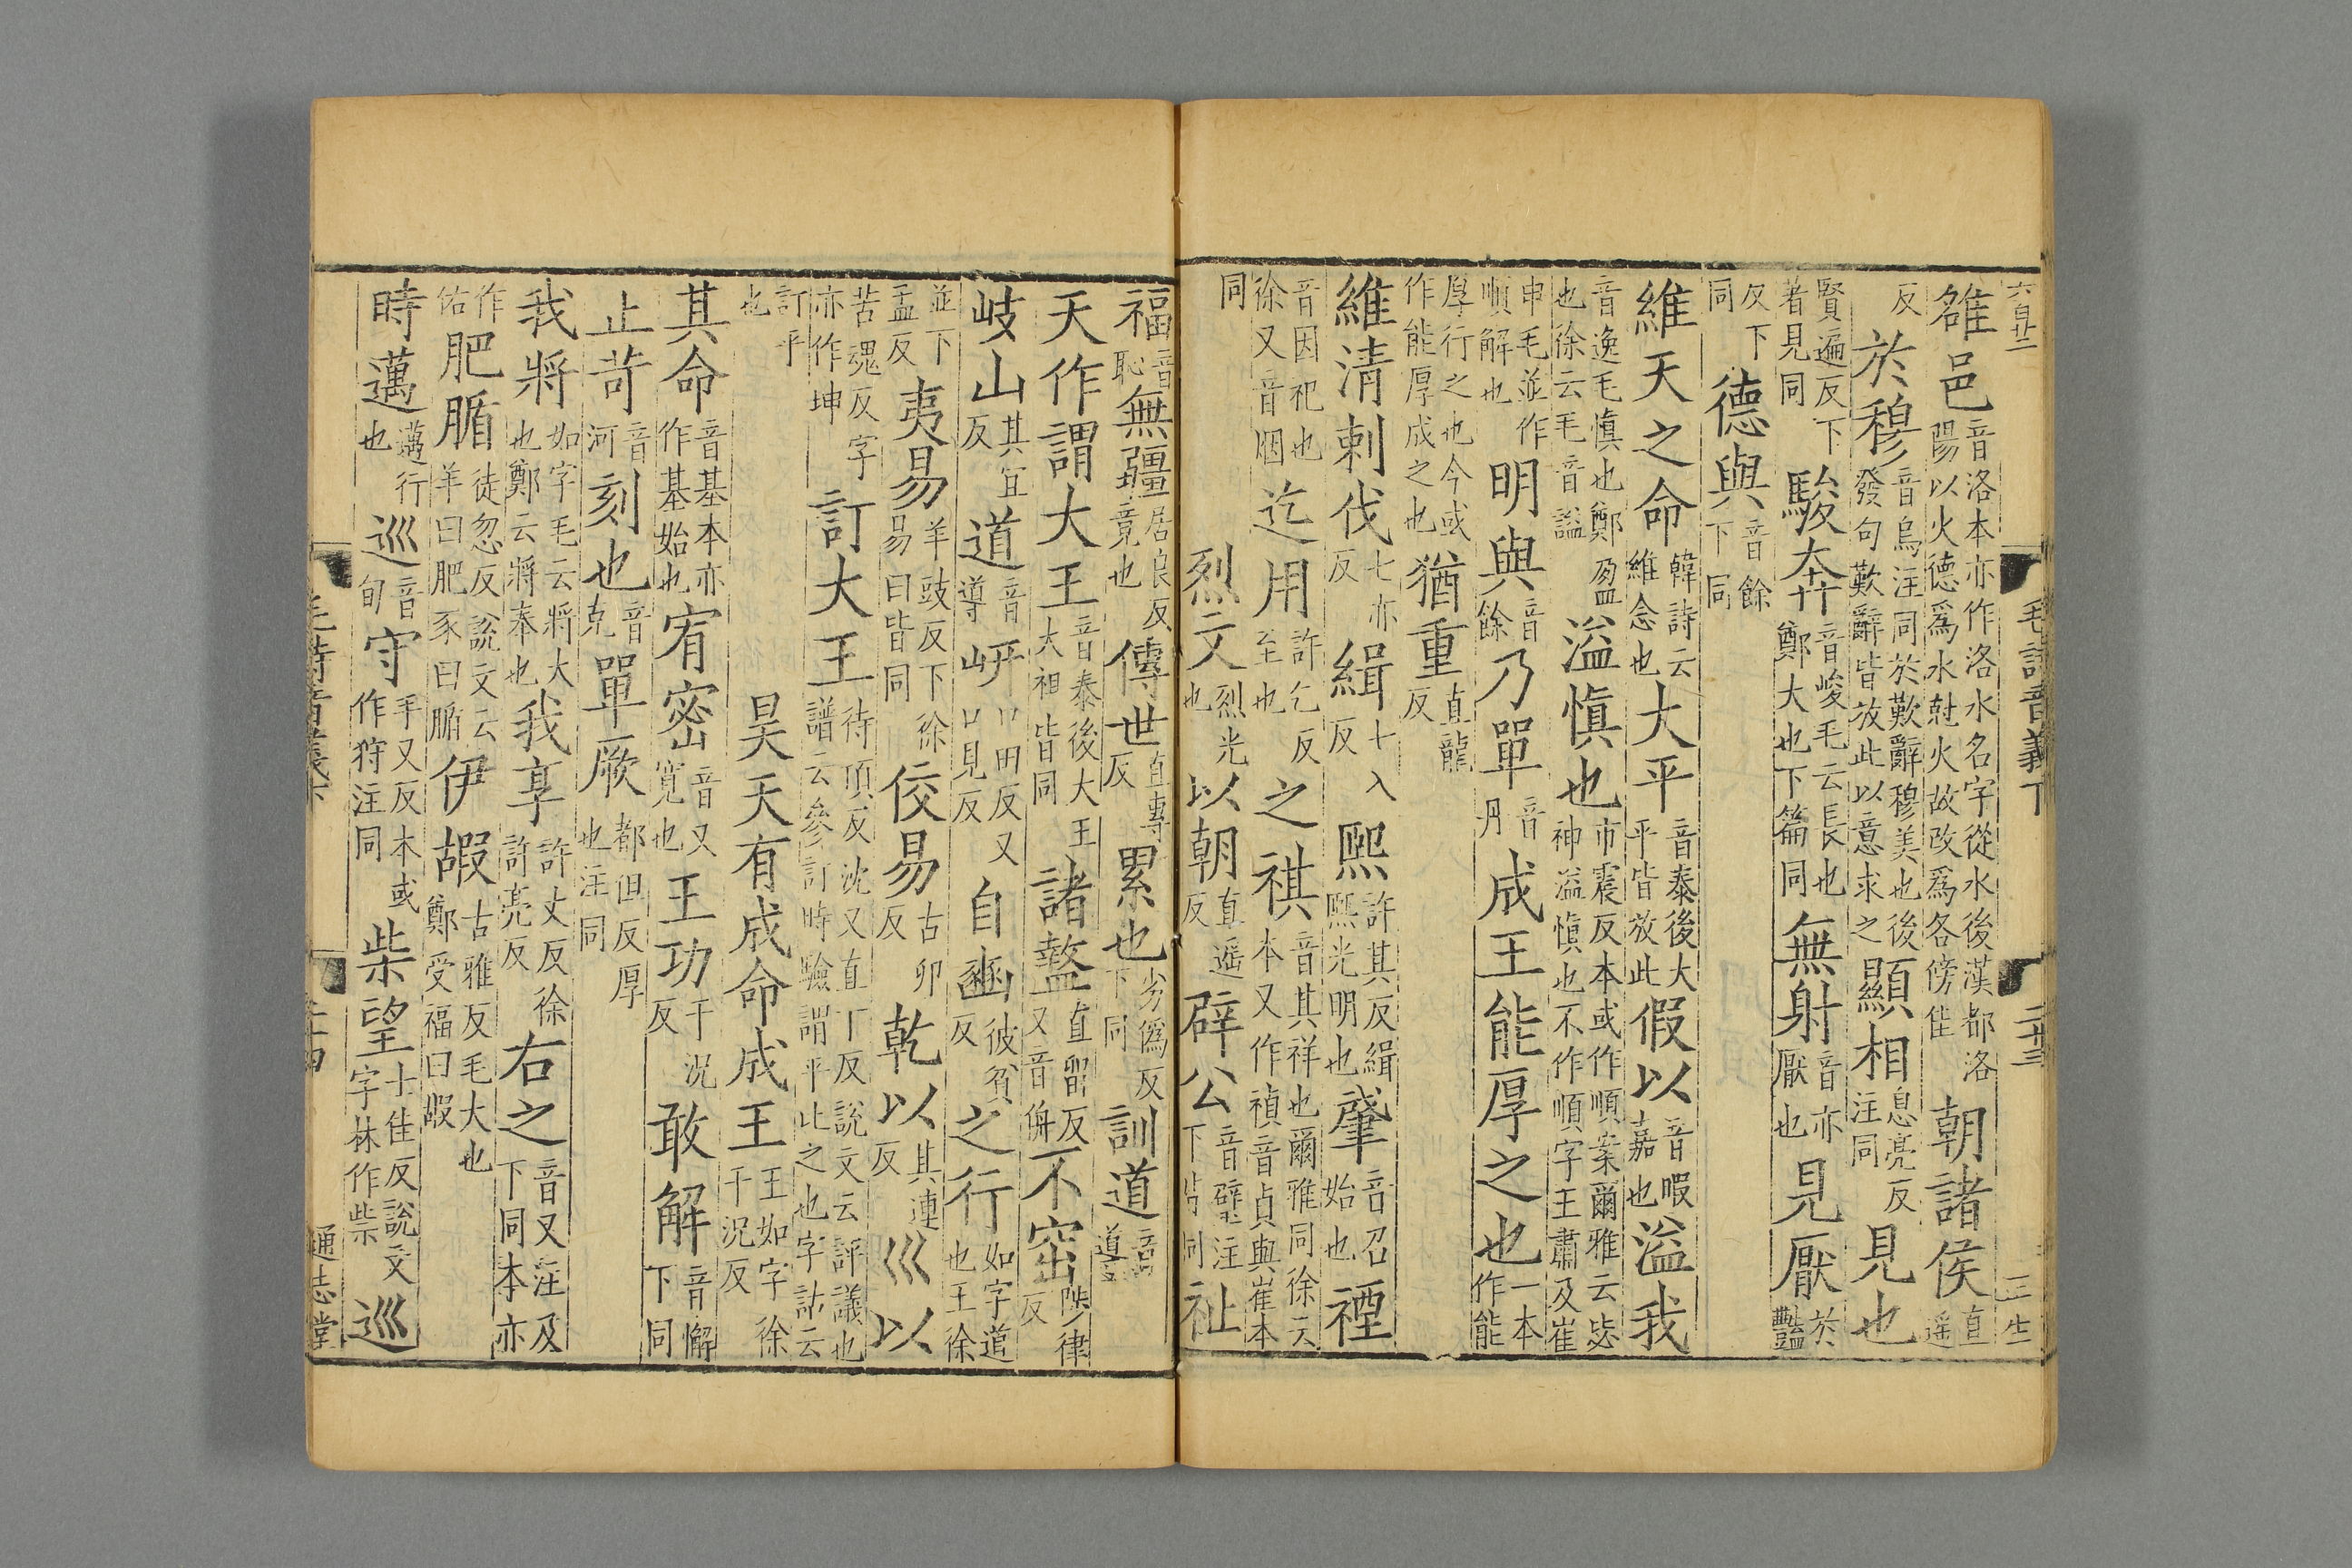 六百廿二
毛詩音義下 二十三 王生
雒邑音洛本亦作洛水名字從水後漢都洛陽以火德爲水尅火故改爲各傍隹朝諸侯直遥
反於穆音烏注同於歎辭穆美也後發句歎辭皆放此以意求之顯相息亮反注同見也
賢遍反下著見同駿奔音峻毛云長也鄭大也下篇同無射音亦厭也見厭於豔
反下同德與音餘下同
維天之命韓詩云維念也大平音泰後大平皆放此假以音暇嘉也溢我
音逸毛慎也鄭盈也徐云毛音謚溢慎也市震反本或作順案爾雅云毖神溢慎也不作順字王肅及崔
申毛並作順解也明與音餘乃單音丹成王能厚之也一本作能
厚行之也今或作能厚成之也猶重直龍反
維清刺伐七亦反緝七入反熙許其反緝熙光明也肇音召始也禋
音因祀也徐又音烟迄用許乞反至也之祺音其祥也爾雅同徐云本又作禎音貞與崔本
同烈文烈光也以朝直遥反辟公音璧注下皆同祉
福音恥無疆居良反竟也傳世直專反累也劣僞反下同訓道音導
天作謂大王音泰後大王大祖皆同諸盩直留反又音侜不窋陟律反
岐山其宜反道音導岍口田反又口見反自豳彼貧反之行如字道也王徐
並下孟反夷易羊豉反下徐易曰皆同佼易古卯反乾以其連反巛以
苦魂反字亦作坤訂大王待頂反沈又直丁反說文云評議也譜云參訂時驗謂平此之也字詁云
訂平也昊天有成命成王王如字徐于況反
其命音基本亦作基始也宥密音又寬也王功于況反敢解音懈下同
止苛音河刻也音克單厥都但反厚也注同
我將如字毛云將大也鄭云將奉也我享許丈反徐許亮反右之音又注及下同本亦
作佑肥腯徒忽反說文云羊曰肥豕曰腯伊嘏古雅反毛大也鄭受福曰嘏
時邁邁行也巡音旬守手又反本或作狩注同柴望士佳反說文字林作祡巡
毛詩音義下 二十四 通志堂